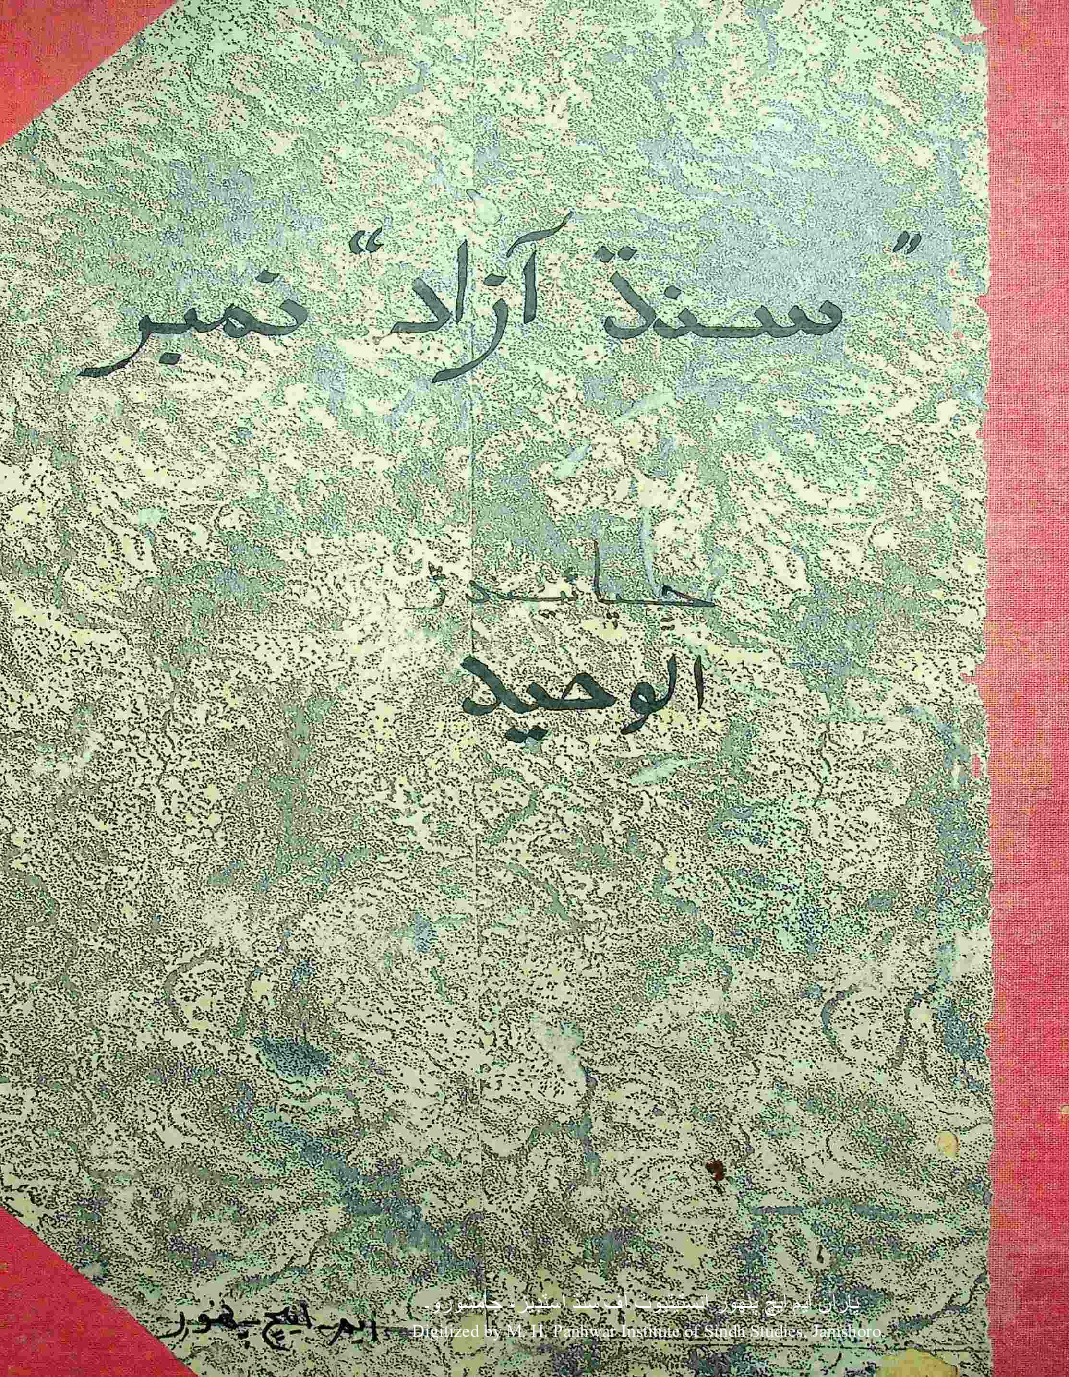 ”سنڌ آزاد“ نمبر
ڇاپيندڙ
الوحيد
ايم ايڇ پنهور
پاران ايم ايڇ پنهور انسٽيٽيوٽ آف سنڌ اسٽڊيز، ڄامشورو.
Digitized by M. H. Panhwar Institute of Sindh Studies, Jamshoro.